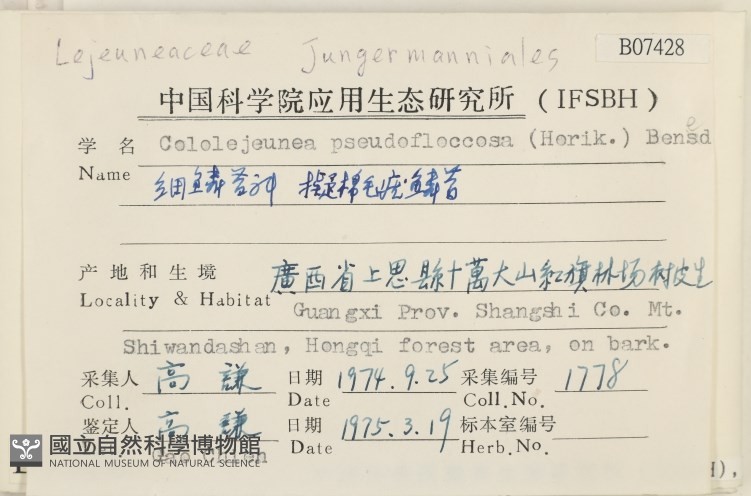 Lejeuneaceae Jungermanniales B07428
中国科学院应用生态研究所 (IFSBH)
学 名 Cololejeunea pseudofloccosa (Horik.) Bensed
Name 细鳞苔科 拟棉毛疣鳞苔
产地和生境 廣西省上思縣十萬大山紅旗林场树皮生
Locality & Habitat Guangxi Prov. Shangshi Co. Mt.
Shiwandashan, Hongqi forest area, on bark.
采集人 高謙 日期 1974.9.25 采集编号 1778
Coll. Date Coll.No.
鉴定人 高謙 日期 1975.3.19 标本室编号
Date Herb.No.
國立自然科學博物館
NATIONAL MUSEUM OF NATURAL SCIENCE